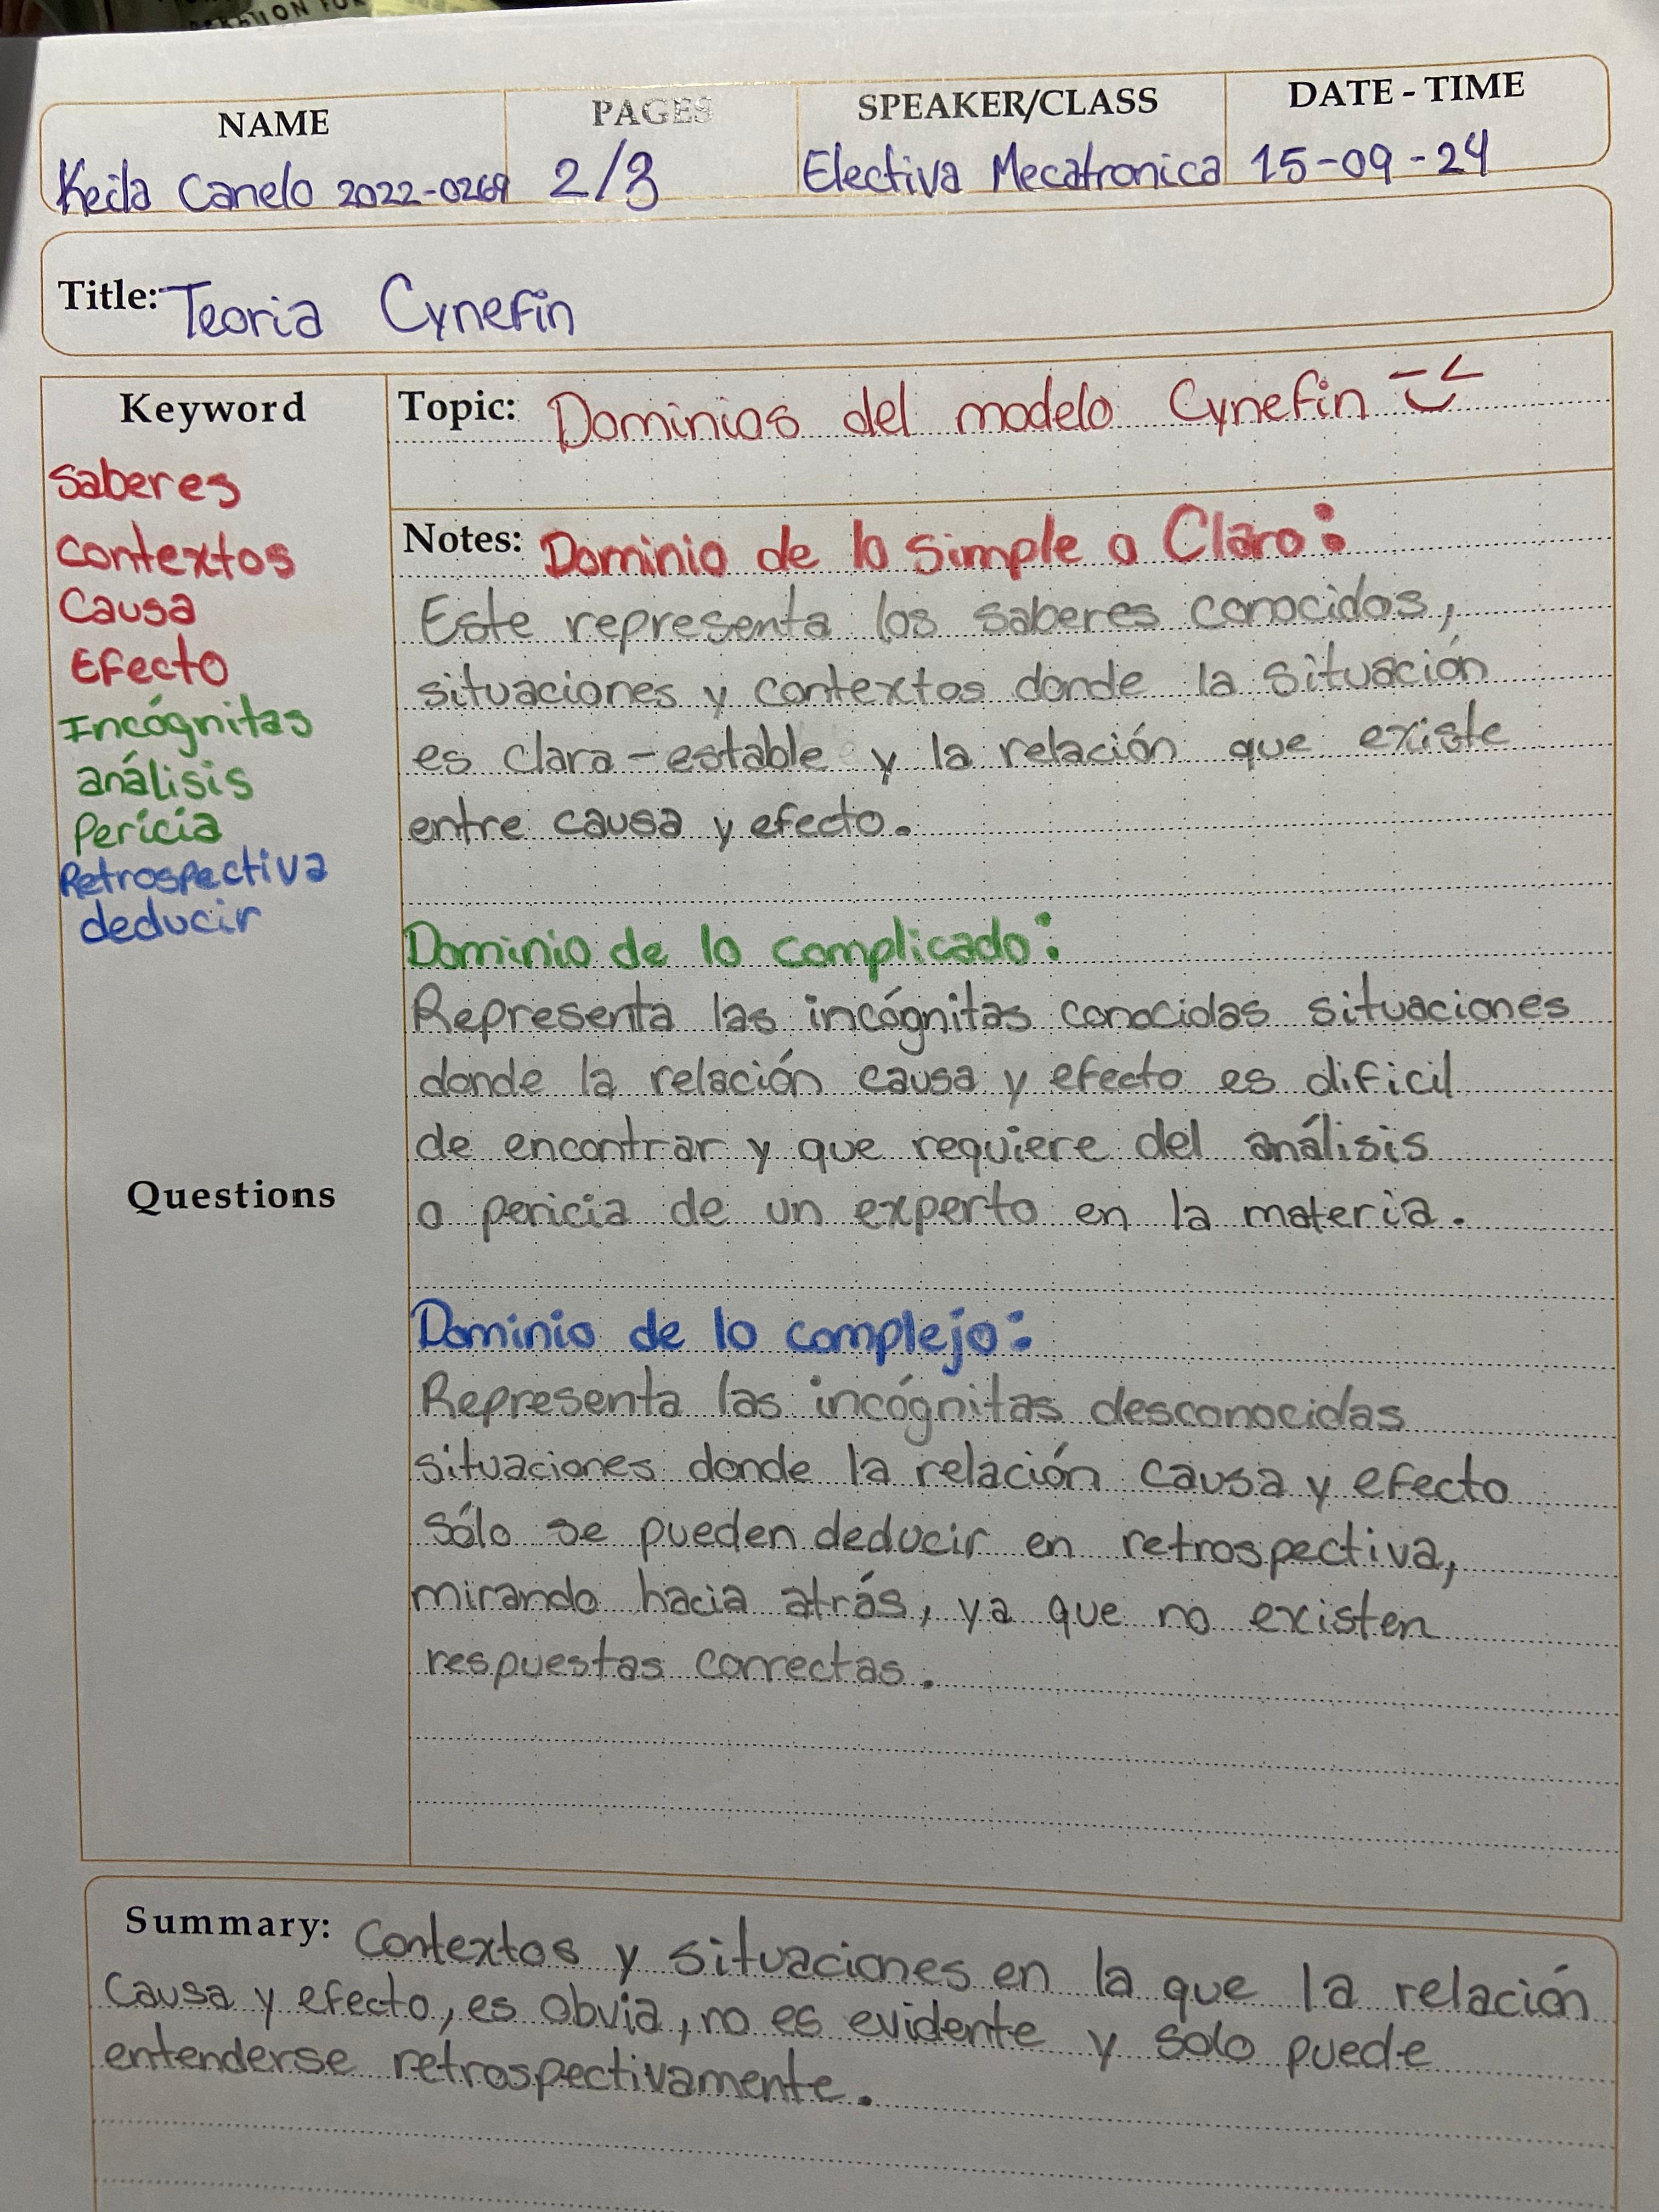 RATION FOR
NAME
PAGES
SPEAKER/CLASS
DATE - TIME
Keila Canelo 2022-0269
2/3
Electiva Mecatronica
15-09-24
Title: Teoria Cynefin
Keyword
Saberes
Contextos
Causa
Efecto
Incógnitas
análisis
Pericia
Retrospectiva
deducir
Questions
Topic: Dominios del modelo Cynefin
Notes: Dominio de lo simple o Claro:
Este representa los saberes conocidos,
situaciones y contextos donde la situación
es clara-estable y la relación que existe
entre causa y efecto.
Dominio de lo complicado:
Representa las incógnitas conocidas situaciones
donde la relación causa y efecto es dificil
de encontrar y que requiere del análisis
o pericia de un experto en la materia.
Dominio de lo complejo:
Representa las incógnitas desconocidas
situaciones donde la relación causa y efecto
sólo se pueden deducir en retrospectiva,
mirando hacia atrás, ya que no existen
respuestas correctas.
Summary: Contextos y situaciones en la que la relación
Causa y efecto, es obvia, no es evidente y solo puede
entenderse retrospectivamente.